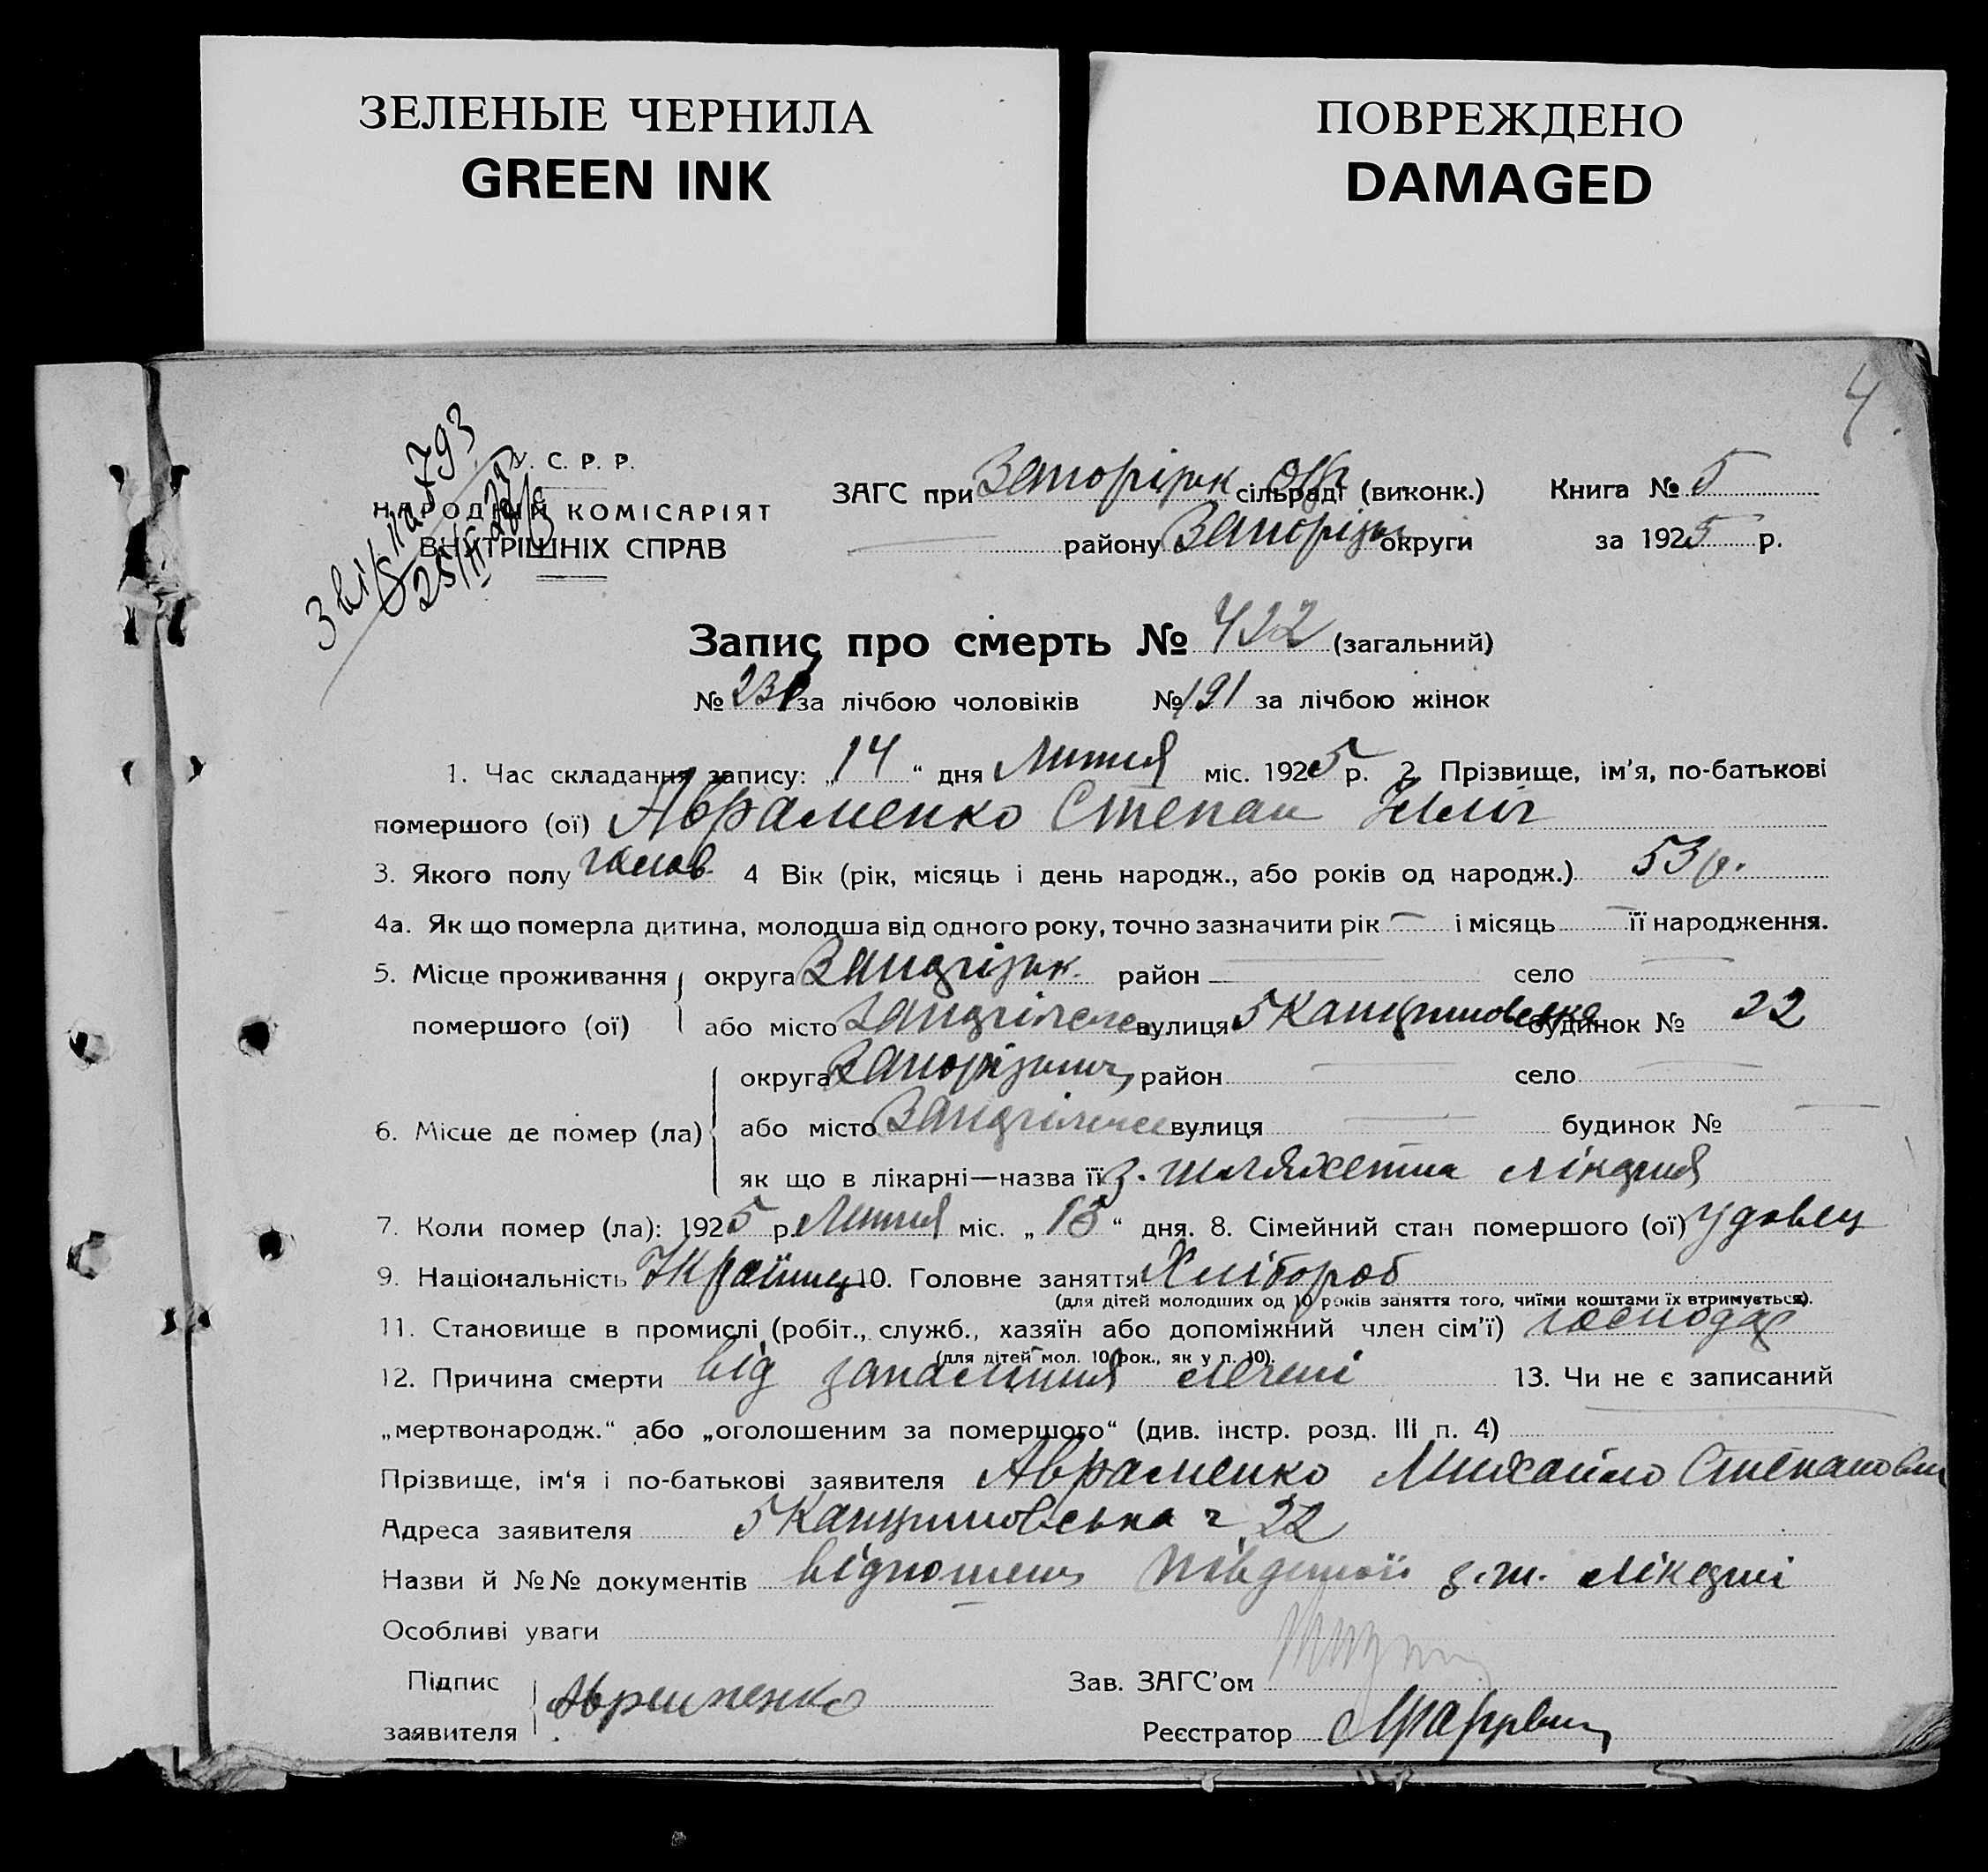 ЗЕЛЕНЫЕ ЧЕРНИЛА
GREEN INK
ПОВРЕЖДЕНО
DAMAGED
4
793
У. С. Р. Р.
НАРОДНІЙ КОМІСАРІЯТ
ВНУТРІШНІХ СПРАВ
ЗАГС при Запоріжк сільраді (виконк.) Книга № 5
району Запоріж округи за 1925 р.
Запис про смерть № 422 (загальний)
№ 231 за лічбою чоловіків № 191 за лічбою жінок
1. Час складання запису: „14“ дня Липня міс. 1925 р. 2. Прізвище, ім'я, по-батькові
помершого (ої) Авраменко Степан Ілліч
3. Якого полу чолов. 4 Вік (рік, місяць і день народж., або років од народж.) 53 р.
4а. Як що померла дитина, молодша від одного року, точно зазначити рік — і місяць — її народження.
5. Місце проживання округа Запоріжк. район — село —
помершого (ої) або місто Запоріжже вулиця 5 будинок № 22
округа район — село —
6. Місце де помер (ла) або місто Запоріжже вулиця — будинок № —
як що в лікарні—назва її лікарня
7. Коли помер (ла): 1925 р. Липня міс. „13“ дня. 8. Сімейний стан помершого (ої) удовець
9. Національність Українець 10. Головне заняття Хлібороб
(для дітей молодших од 10 років заняття того, чиїми коштами їх втримується).
11. Становище в промислі (робіт., служб., хазяїн або допоміжний член сім'ї) господар
(для дітей мол. 10 рок., як у п. 10).
12. Причина смерти від запалення 13. Чи не є записаний
„мертвонародж.“ або „оголошеним за помершого“ (див. інстр. розд. III п. 4) —
Прізвище, ім'я і по-батькові заявителя Авраменко Михайло Степанович
Адреса заявителя 5 22
Назви й №№ документів лікарні
Особливі уваги —
Підпис
заявителя Авраменко
Зав. ЗАГС'ом
Реєстратор